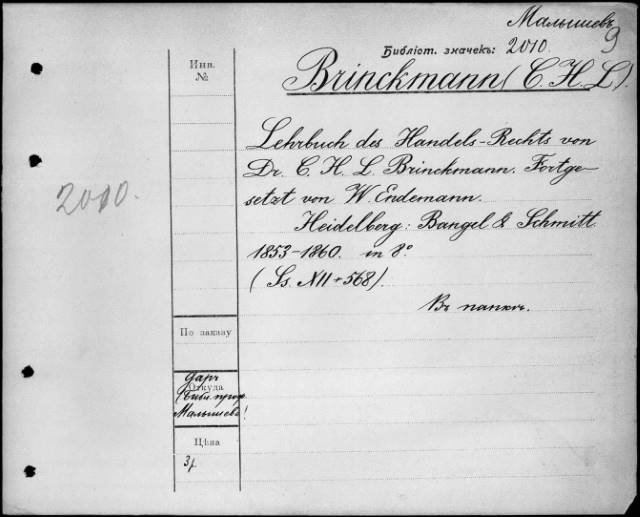 Малышевъ
9
Библіот. значекъ: 2010.
Brinckmann (C. H. L.).
Инв.
№
Lehrbuch des Handels-Rechts von
Dr. C. H. L. Brinckmann. Fortge-
setzt von W. Endemann.
Heidelberg: Bangel & Schmitt
1853-1860. in 8°
(Ss. XII + 568).
Въ папкѣ.
2010.
По заказу
Даръ
Откуда
(библ. проф.
Малышева!
Цѣна
3р.